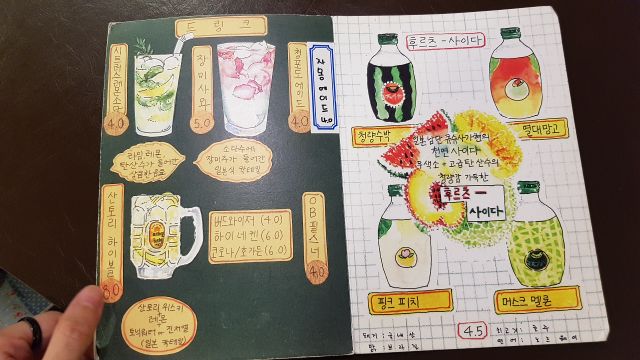 드링크
시트러스레몬소다
4.0
장미사와
5.0
청포도에이드
4.0
자몽에이드
4.0
라임, 레몬
탄산수가 들어간
상큼한 음료
소다수에
장미수가 들어간
일본식 칵테일
산토리 하이볼
8.0
버드와이저 (4.0)
하이네켄 (6.0)
코로나/호가든 (6.0)
OB필스너
4.0
산토리 위스키
레몬
토닉워터 or 진저엘
(일본 칵테일)
후르츠-사이다
청량수박
열대망고
일본남단 큐슈사가현의
천연 사이다
무색소 + 고급탄산수의
청량감 가득한
후르츠-
사이다
핑크 피치
머스크 멜론
4.5
돼지: 국내산
닭: 브라질
쇠고기: 호주
연어: 노르웨이